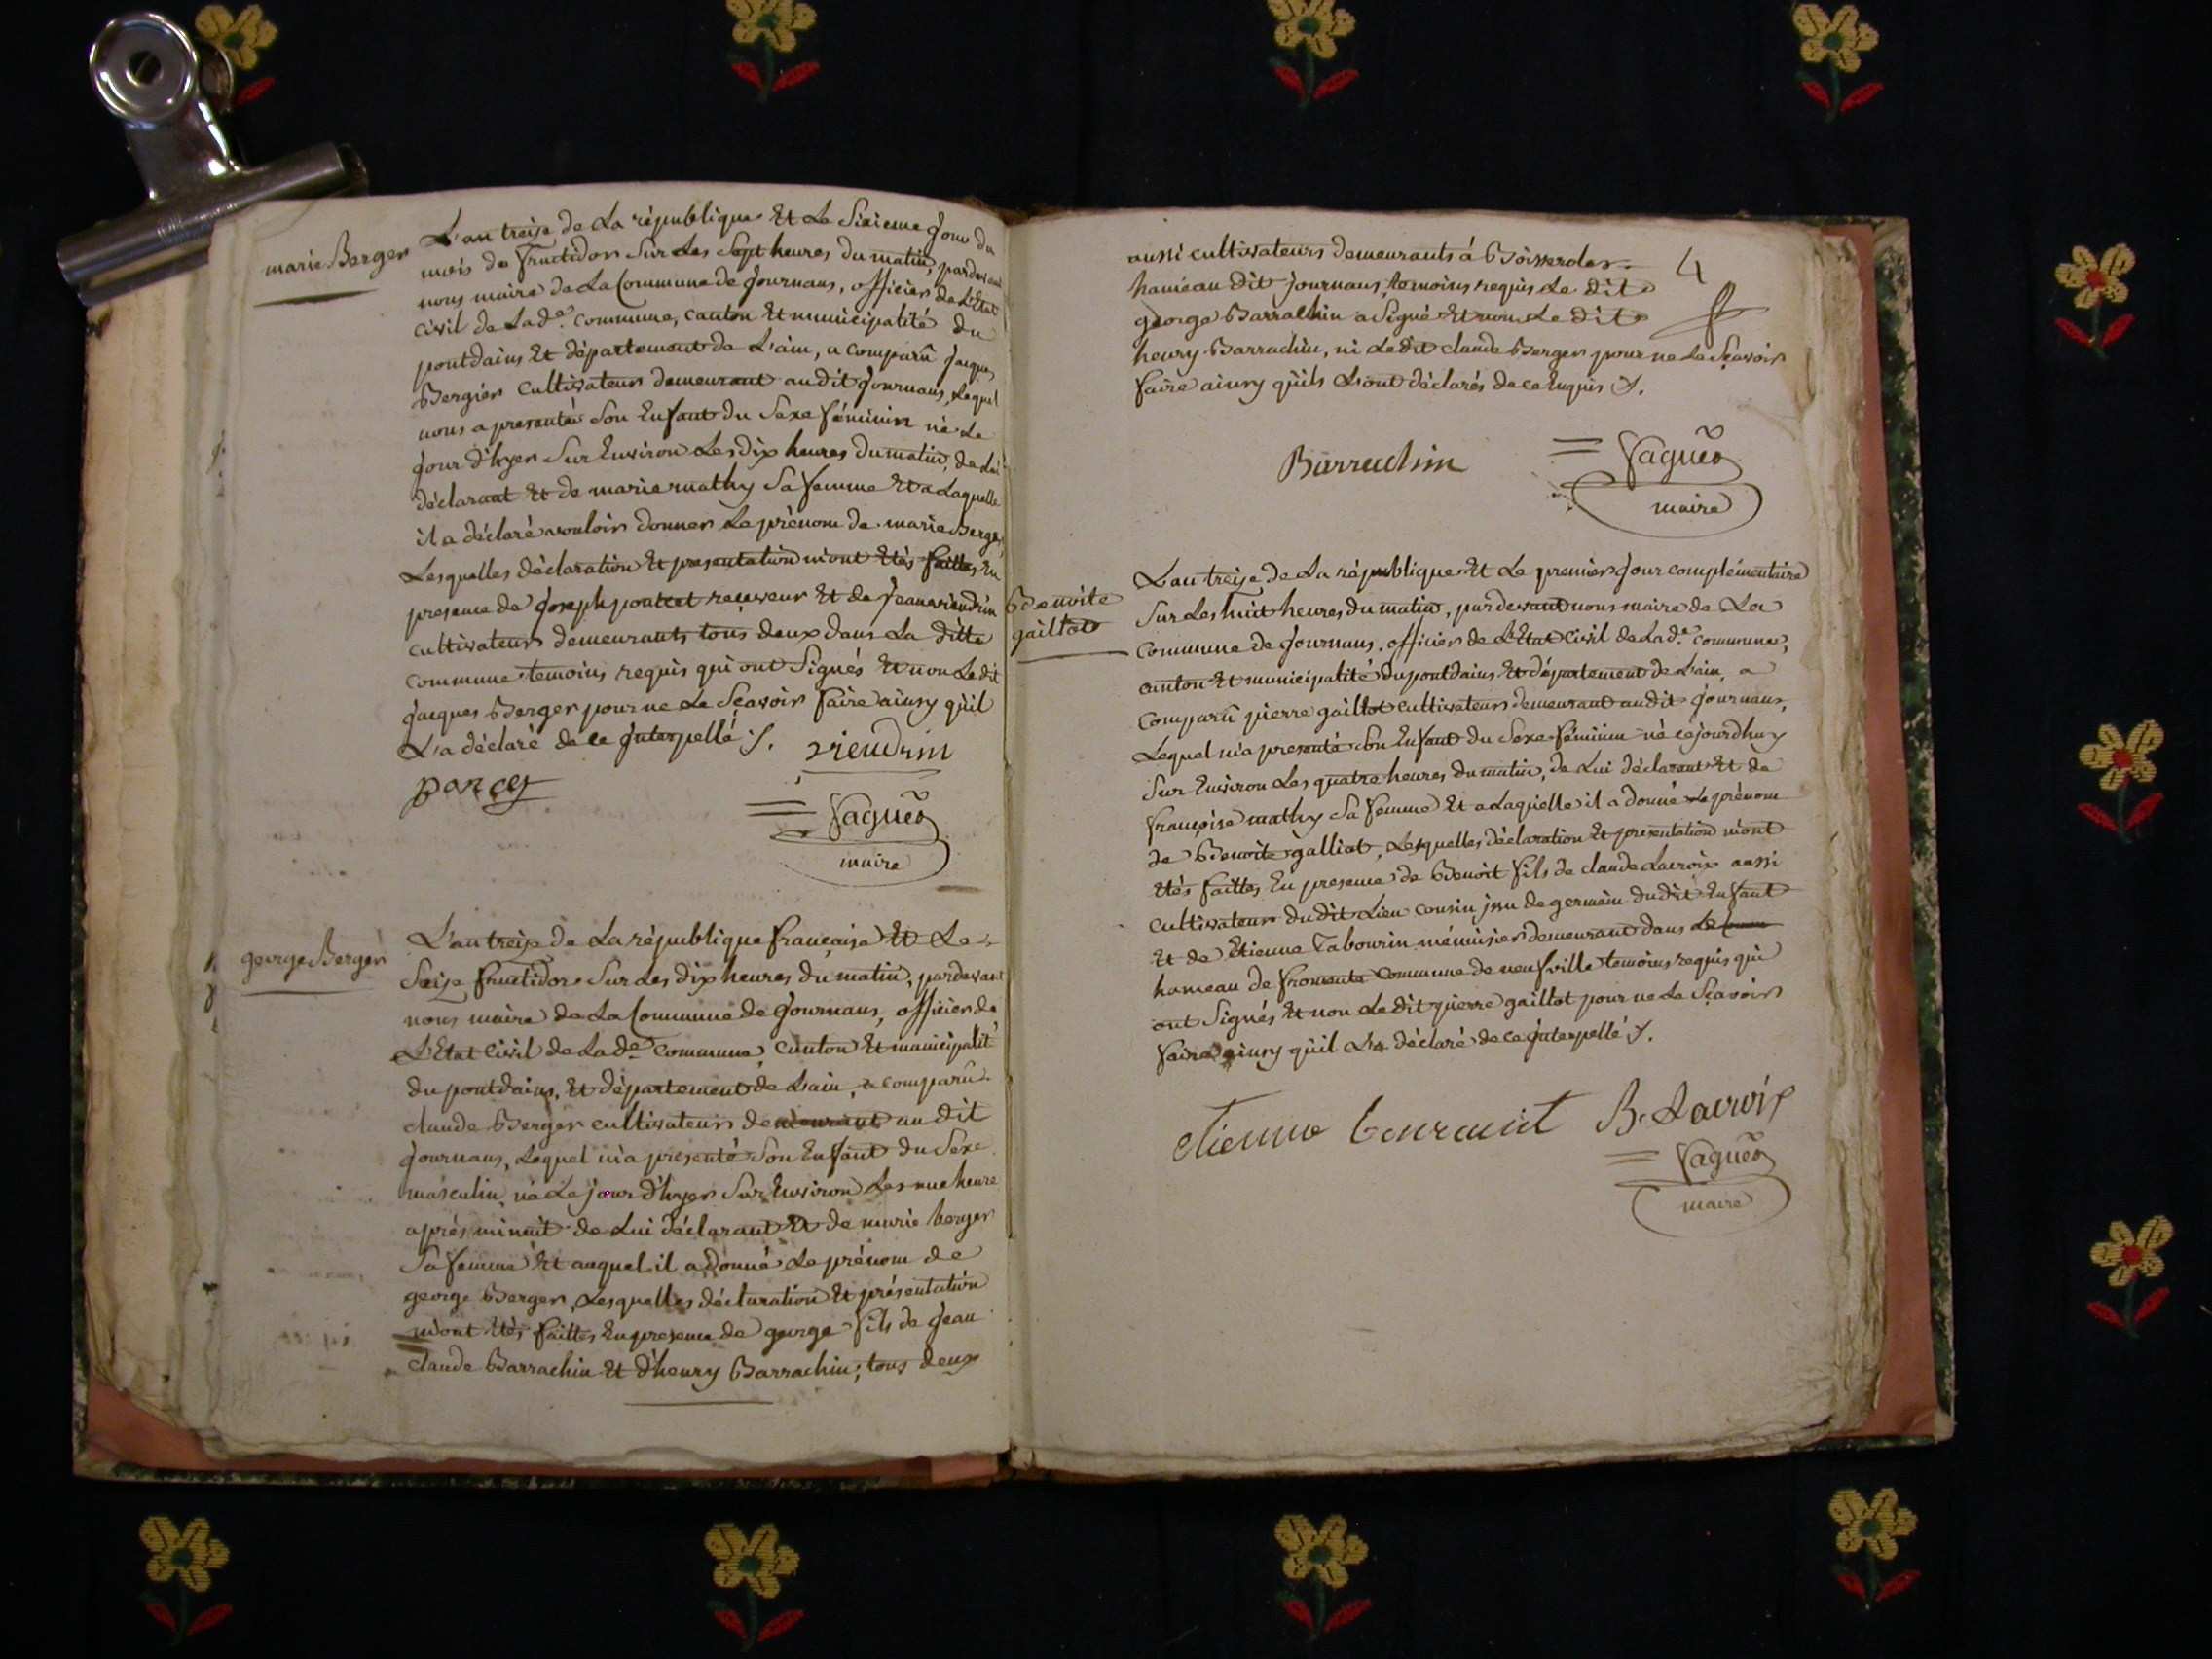 marie Berger
L'an treize de La république Et Le Sixieme jour du
mois de fructidor Sur Les Sept heures du matin, pardevant
nous maire de La Commune de journans, officier de L'Etat
civil de Lade. commune, canton Et municipalité du
pontdains Et département de L'ain, a comparû jacques
Bergier cultivateur demeurant audit journans, Lequel
nous a presenté Son Enfant du Sexe féminin né Le
jour d'hyer Sur Environ Les dix heures du matin, de Lui
déclarant Et de marie mathy Sa femme Et a Laquelle
il a déclaré vouloir donner Le prénom de marie Berger,
Lesquelles déclaration Et presentation m'ont Etés faittes En
presence de joseph poncet receveur Et de jean viendrin
cultivateurs demeurants tous deux dans La ditte
commune temoins requis qui ont Signés Et non Ledit
jacques Berger pour ne Le Scavoir faire ainsy qu'il
L'a déclaré de ce interpellé ./.
viendrin
poncet
maire
george Berger
L'an treize de La république française Et Le
Seize fructidor Sur Les dix heures du matin, pardevant
nous maire de La Commune de journans, officier de
L'Etat civil de Lade. commune, canton Et municipalité
du pontdains, Et département de Lain, a comparû
claude Berger cultivateur demeurant au dit
journans, Lequel m'a presenté Son Enfant du Sexe
masculin, né Le jour d'hyer Sur Environ Les une heure
après minuit de Lui déclarant Et de marie berger
Sa femme Et auquel il a donné Le prénom de
george Berger, Lesquelles déclaration Et présentation
m'ont Etés faittes En presence de george fils de jean
claude Barrachin Et d'henry Barrachin, tous deux
4
aussi cultivateurs demeurants á
hameau dit journans, temoins requis Le dit
george Barrachin a Signé Et non Le dit
henry Barrachin, ni Ledit claude Berger pour ne Le Scavoir
faire ainsy qu'ils L'ont déclarés de ce Enquis ./.
Barrachin
maire
Benoite
gaillot
L'an treize de La république Et Le premier jour complémentaire
Sur Les huit heures du matin, pardevant nous maire de La
commune de journans, officier de L'Etat civil de Lade. commune,
canton Et municipalité du pontdains Et département de L'ain, a
comparû pierre gaillot cultivateur demeurant audit journans,
Lequel m'a presenté Son Enfant du Sexe féminin né cejourdhuy
Sur Environ Les quatre heures du matin, de Lui déclarant Et de
françoise mathy Sa femme Et a Laquelle il a donné Le prénom
de Benoite galliot, Lesquelles déclaration Et presentation m'ont
Etés faittes En presence de Benoit fils de claude Lacroix aussi
cultivateur du dit Lieu cousin issu de germain dudit Enfant
Et de Etienne Tabourin ménuisier demeurant dans Le
hameau de fromente commune de neufville temoins requis qui
ont Signés Et non Le dit pierre gaillot pour ne Le Scavoir
faire ainsy qu'il L'a déclaré de ce interpellé ./.
etienne B. Lacroix
maire